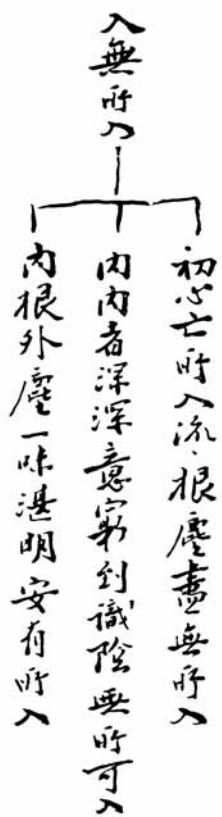 入無所入
初心亡所入流、根塵盡無所入
內內者深深意窮到識陰無所可入
內根外塵一味湛明安有所入